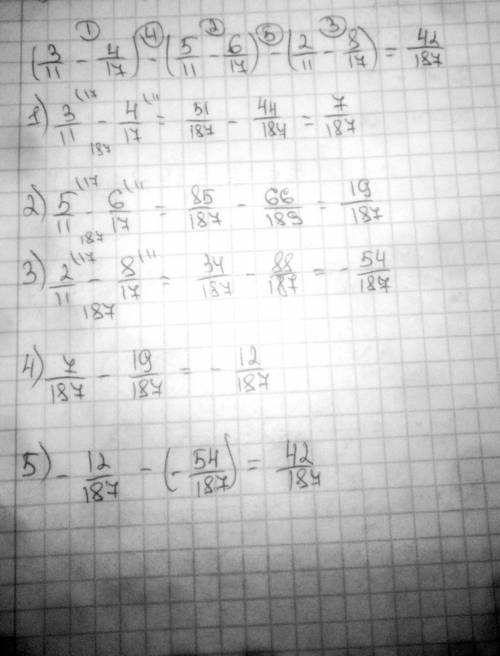 ① ④ ② ⑤ ③
(3/11 - 4/17) - (5/11 - 6/17) - (2/11 - 8/17) = 42/187
1) 3/11 (17 - 4/17 (11 = 51/187 - 44/187 = 7/187
187
2) 5/11 (17 - 6/17 (11 = 85/187 - 66/189 = 19/187
187
3) 2/11 (17 - 8/17 (11 = 34/187 - 88/187 = - 54/187
187
4) 7/187 - 19/187 = - 12/187
5) - 12/187 - (- 54/187) = 42/187